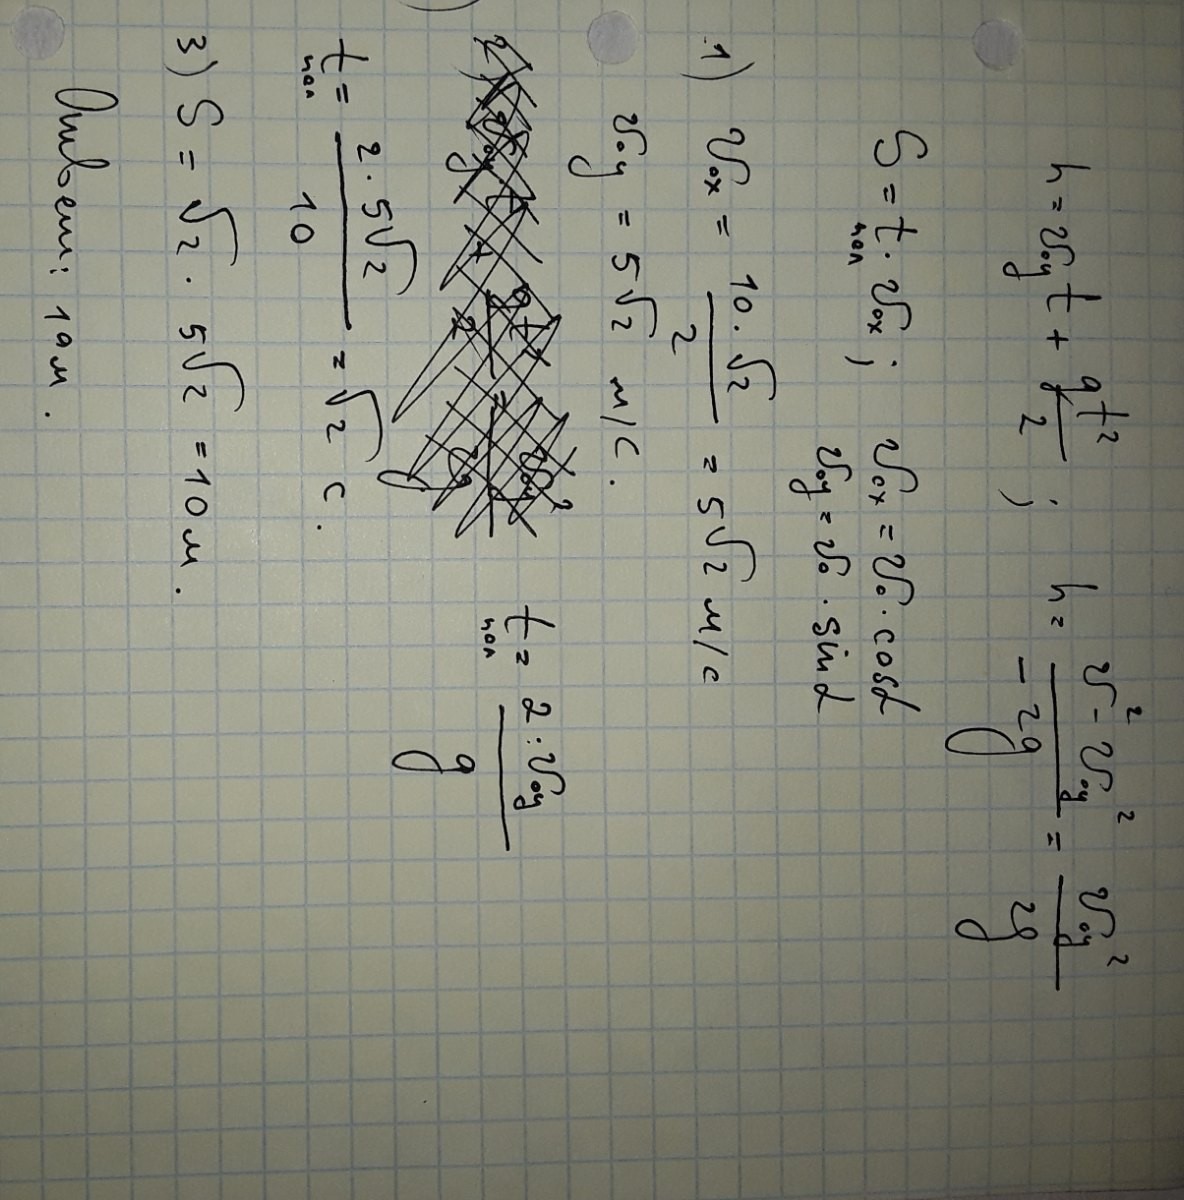 h = v₀y t + gt²/2 ; h = (v² - v₀y²)/(-2g) = v₀y²/2g
S = tпол · v₀x ; v₀x = v₀ · cosα
v₀y = v₀ · sinα
1) v₀x = (10 · √2)/2 = 5√2 м/с
v₀y = 5√2 м/с .
2)
tпол = (2 · v₀y)/g
tпол = (2 · 5√2)/10 = √2 с .
3) S = √2 · 5√2 = 10 м .
Ответ: 10 м .